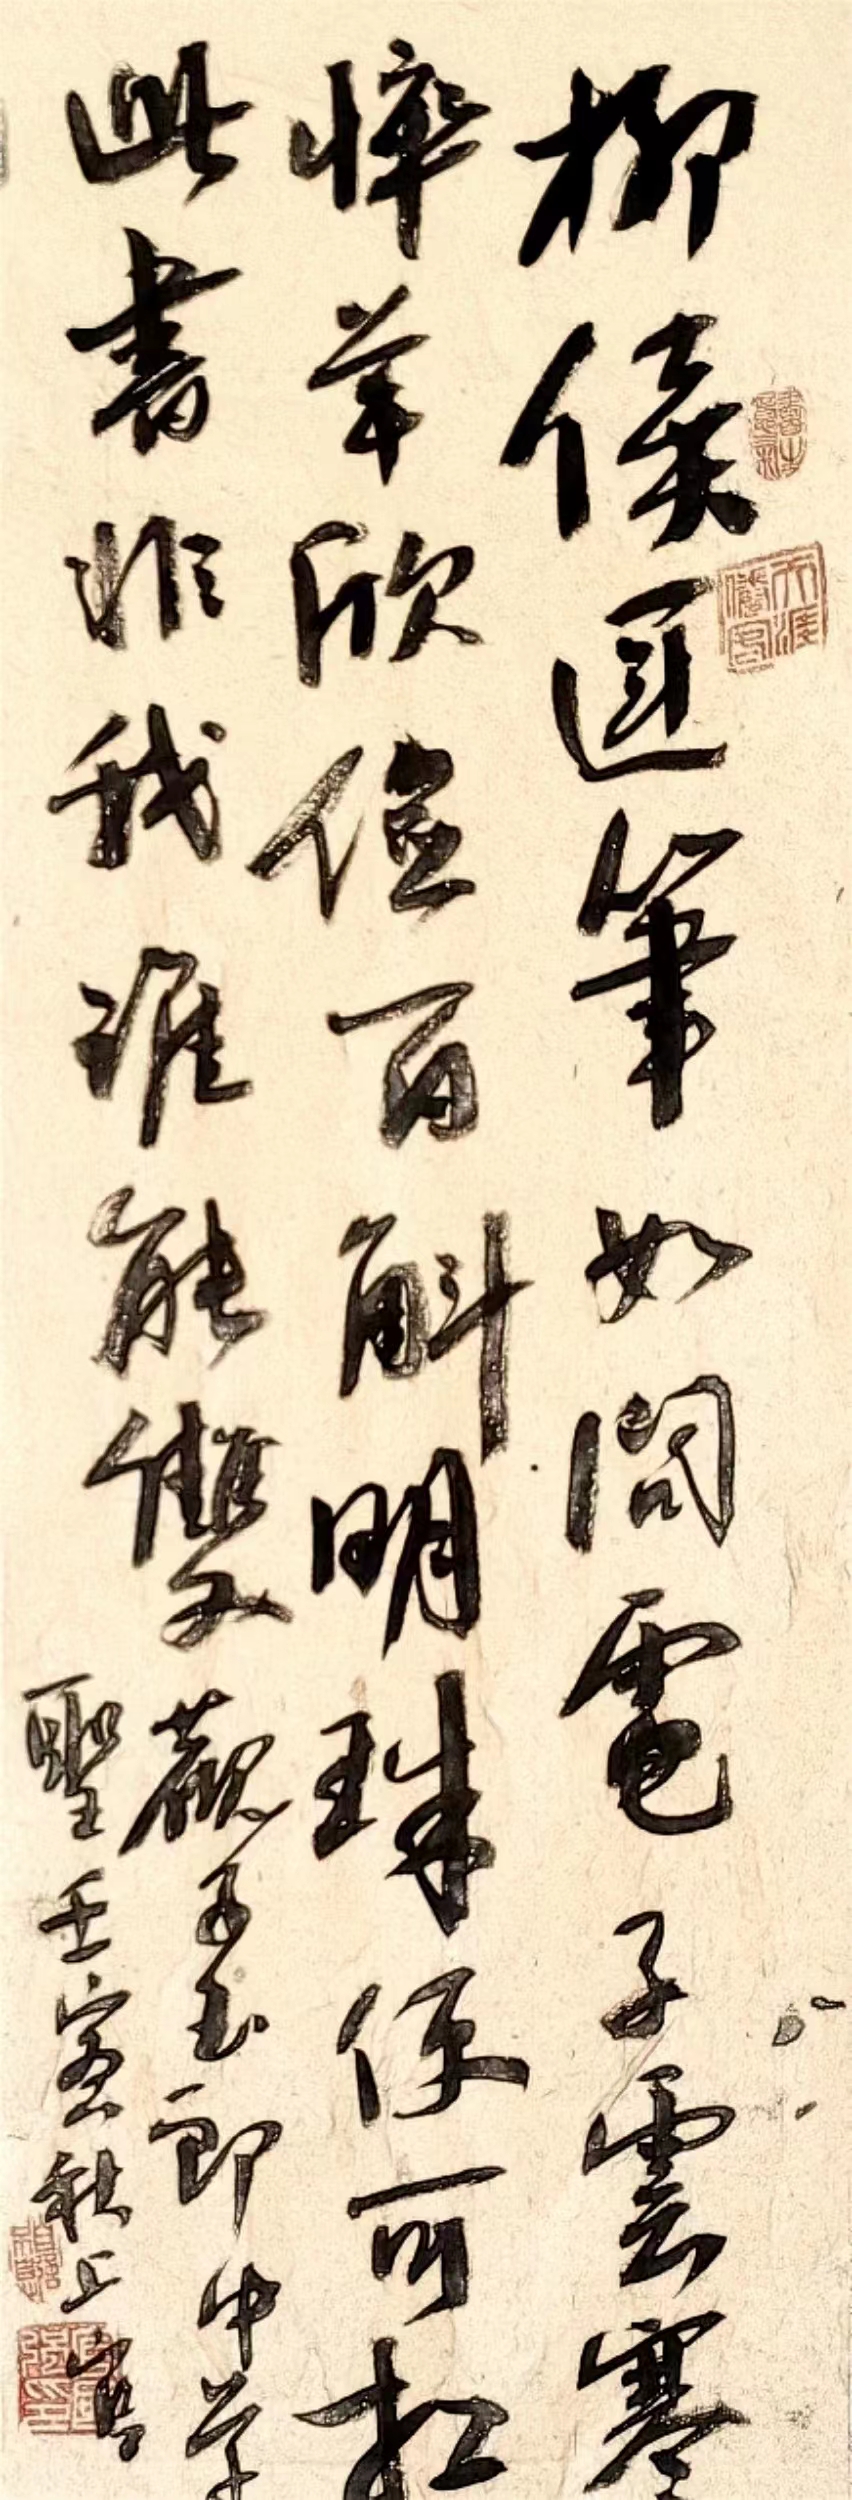 柳侯運筆如閃電子雲寒
悴羊欣儉百斛明珠便可扛
此書非我誰能雙觀子玉郎中草
聖壬寅秋上官